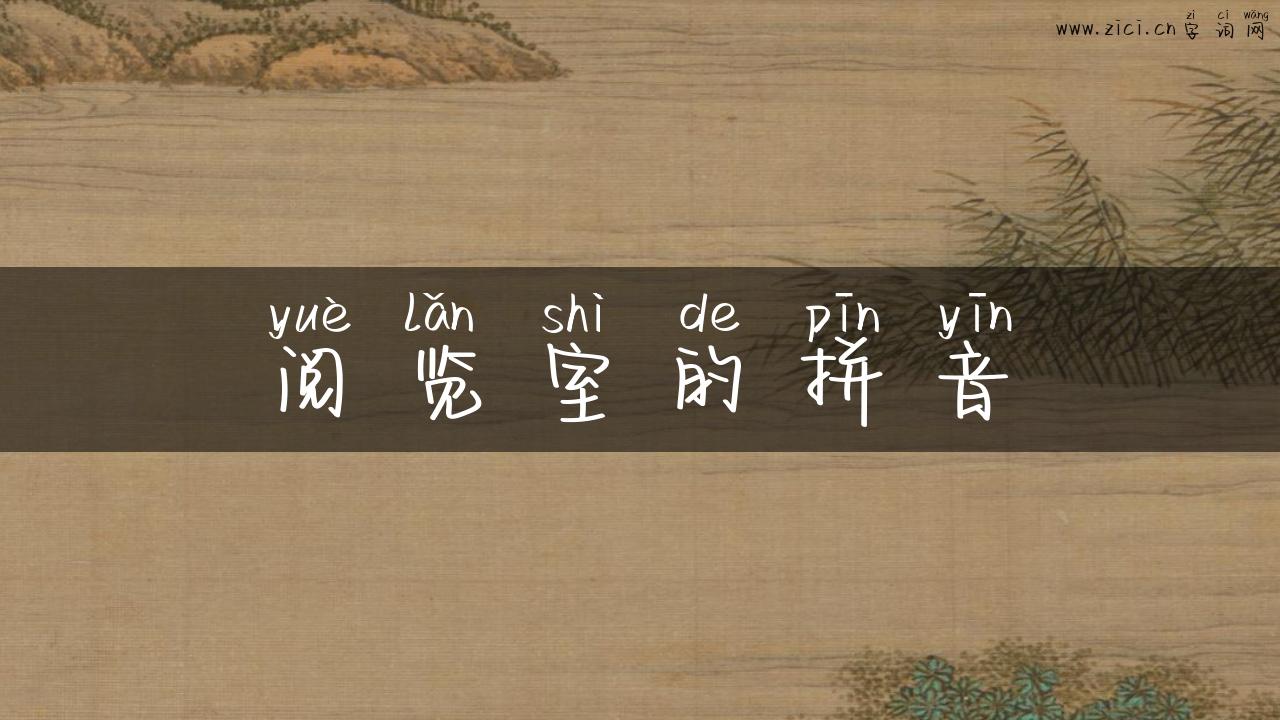 zì cí wǎng
www.zici.cn 字词网
yuè lǎn shì de pīn yīn
阅览室的拼音